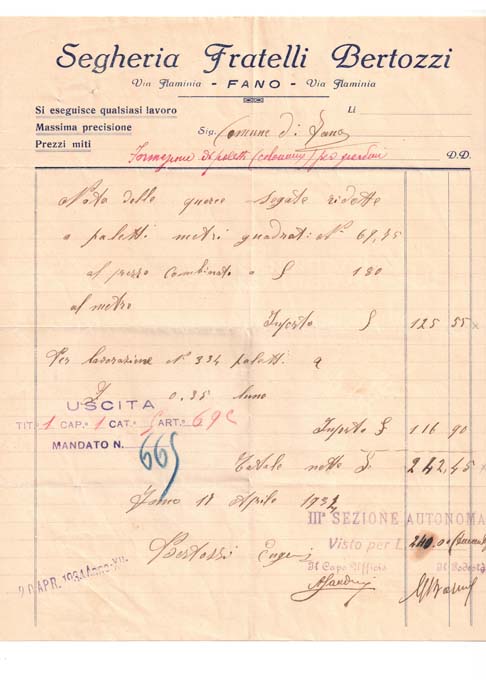 Segheria Fratelli Bertozzi
Via Flaminia - FANO - Via Flaminia
Si eseguisce qualsiasi lavoro
Lì
Massima precisione
Sig. Comune di Fano
Prezzi miti
paletti per giardini
D.D.
Nota delle querce segate ridotte
a paletti metri quadrati N° 69,75
al prezzo combinato a £ 1 80
al metro
Importo £ 125 55
Per lavorazione N° 334 paletti a
£ 0,35 l'uno
USCITA
TIT.° 1 CAP.° 1 CAT.° 5 ART.° 69c
Importo £ 116 90
MANDATO N. 665
Totale netto £. 242,45
Fano 17 Aprile 1934
IIIª SEZIONE AUTONOMA
Visto per L. 240.00
Bertozzi Eugenio
Il Capo Ufficio Il Podestà
20 APR. 1934 Anno XII